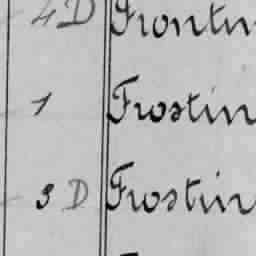 4 D Frontin
1 Frostin
3 D Frostin